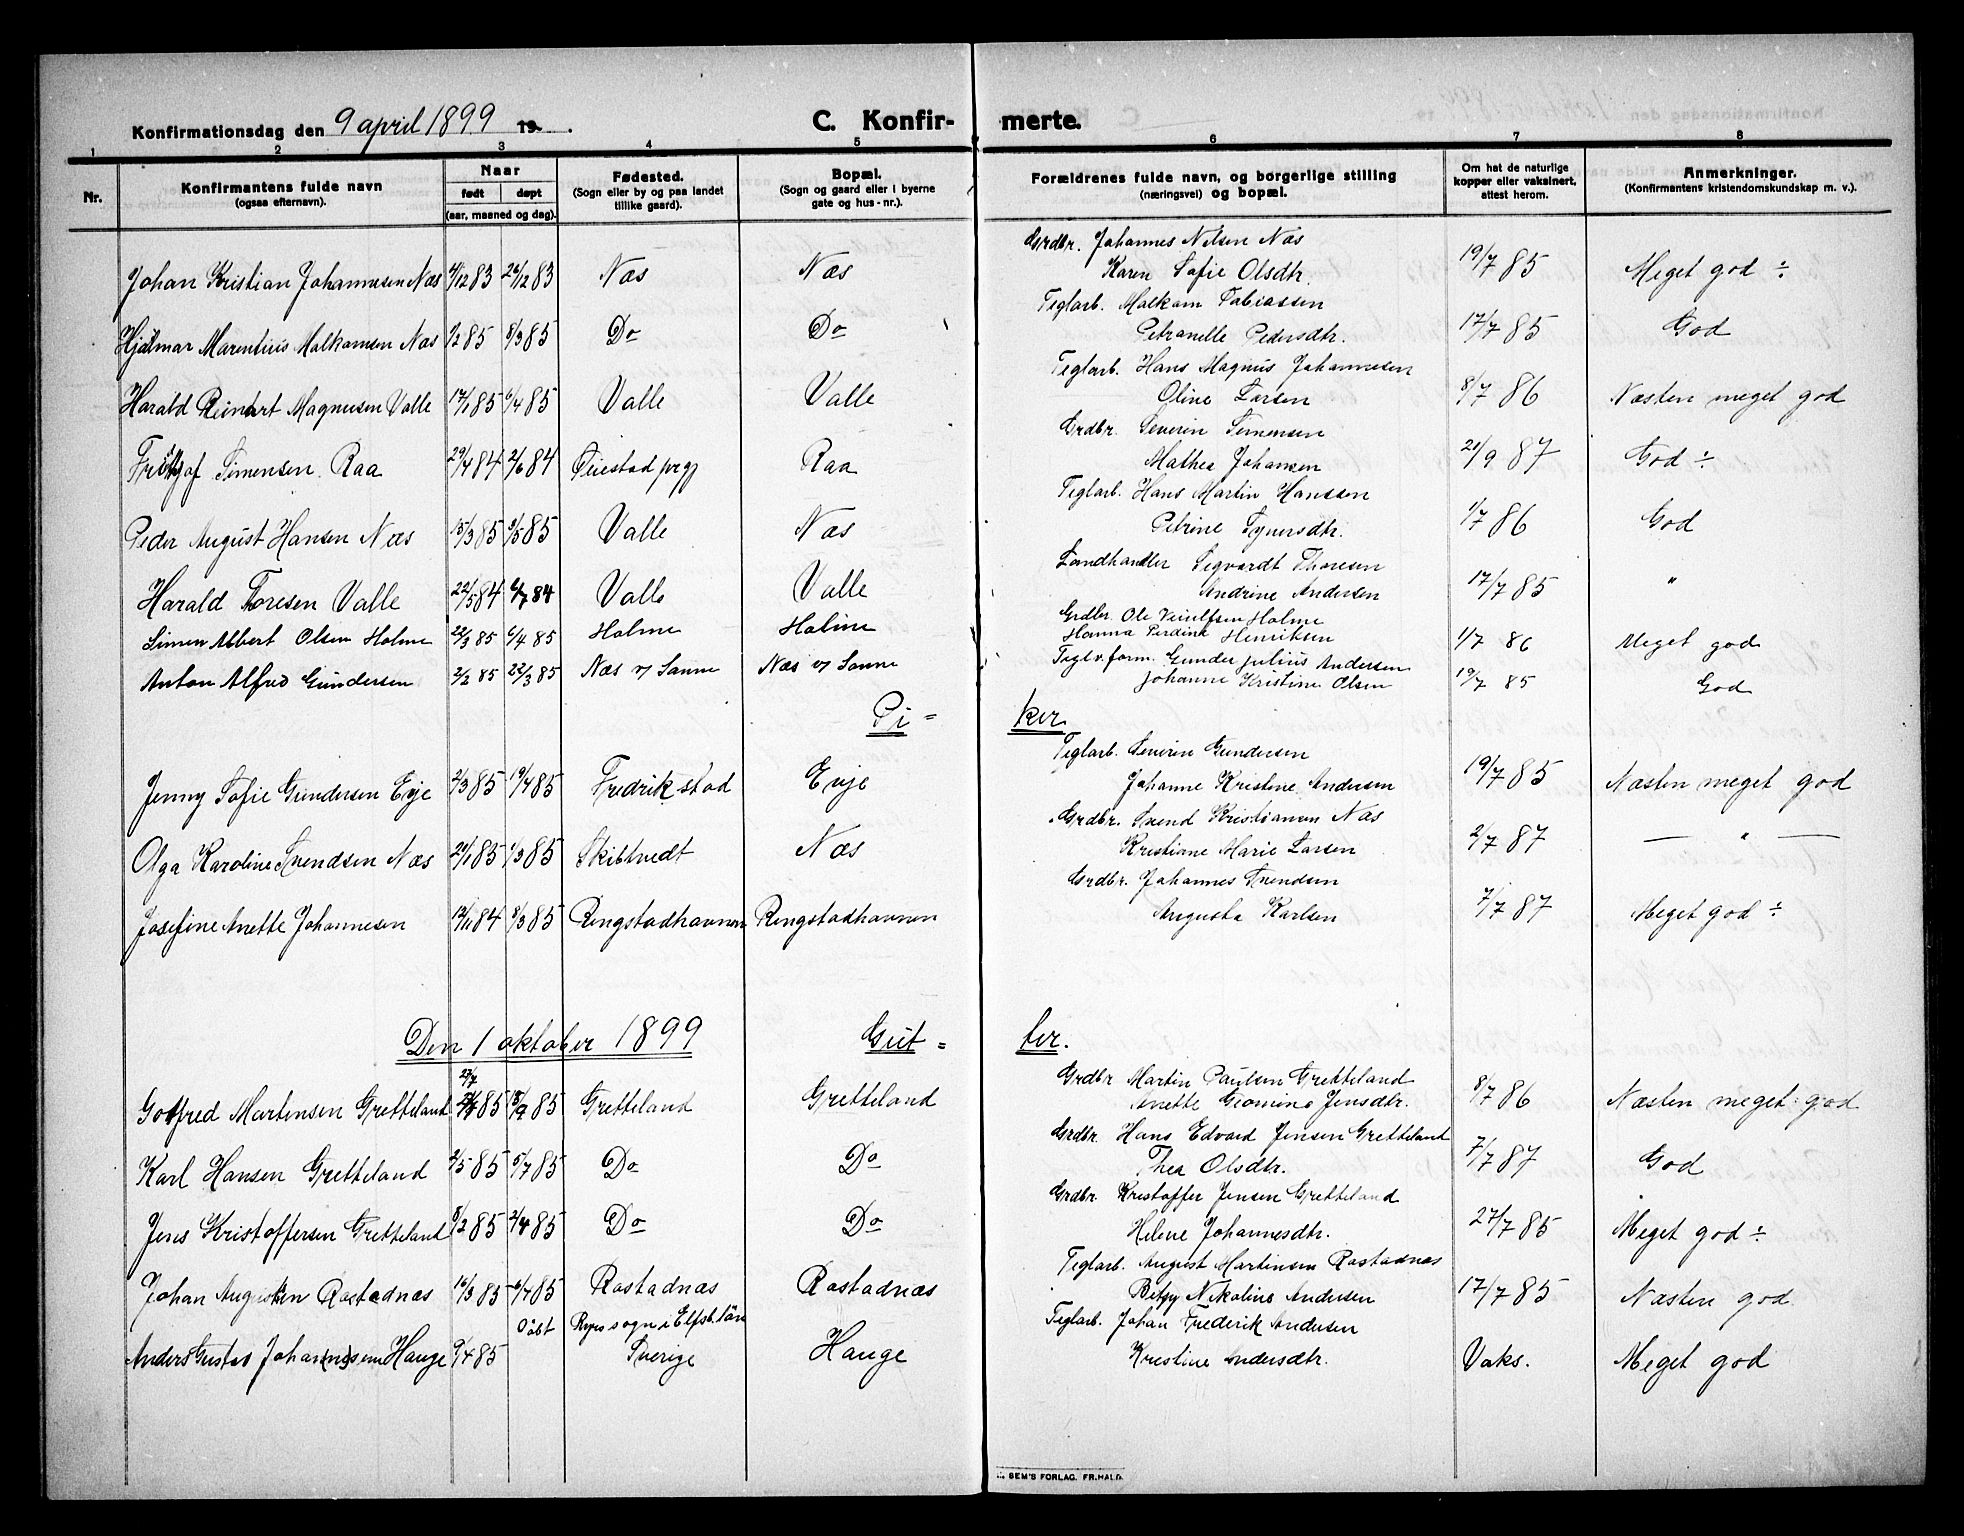 Konfirmationsdag den 9 april 1899 19 . C. Konfir- merte.
1 2 3 4 5 6 7 8
Nr. Konfirmantens fulde navn (ogsaa efternavn). Naar født døpt (aar, maaned og dag). Fødested. (Sogn eller by og paa landet tillike gaard). Bopæl. (Sogn og gaard eller i byerne gate og hus-nr.). Forældrenes fulde navn, og borgerlige stilling (næringsvei) og bopæl. Om hat de naturlige kopper eller vaksinert, attest herom. Anmerkninger. (Konfirmantens kristendomskundskap m. v.).
Grdbr. Johannes Nilsen Næs
Johan Kristian Johannesen Næs 4/12 83 26/12 83 Næs Næs Karen Sofie Olsdtr. 19/7 85 Meget god ÷
Teglarb. Malkam Tobiassen
Hjalmar Marentius Malkamsen Næs 1/2 85 8/3 85 Do Do Petranelle Pedersdtr. 17/7 85 God
Teglarb. Hans Magnus Johannesen
Harald Reinhart Magnusen Valle 17/1 85 6/4 85 Valle Valle Oline Larsen 8/7 86 Næsten meget god
Grdbr. Severin Simensen
Fridtjof Simensen Raa 29/4 84 2/6 84 Øiestad prgj Raa Mathea Johansen 21/9 87 God ÷
Teglarb. Hans Martin Hanssen
Peder August Hansen Næs 15/3 85 3/5 85 Valle Næs Petrine Syversdtr. 1/7 86 God
Landhandler Sigvardt Thoresen
Harald Toresen Valle 22/5 84 6/7 84 Valle Valle Andrine Andersen 17/7 85 "
Grdbr. Ole Holme
Simen Albert Olsen Holme 22/3 85 6/4 85 Holme Holme Hanna Perdina Henriksen 1/7 86 Meget god
Teglv.form. Gunder Julius Andersen
Anton Alfred Gundersen 2/2 85 22/3 85 Næs v/ Sanne Næs v/ Sanne Johanne Kristine Olsen 19/7 85 God
Pi = ker.
Teglarb. Severin Gundersen
Jenny Sofie Gundersen Evje 2/3 85 19/4 85 Fredrikstad Evje Johanne Kristine Andersen 19/7 85 Næsten meget god
Grdbr. Svend Kristiansen Næs
Olga Karoline Svendsen Næs 21/1 85 1/3 85 Skibtvedt Næs Kristiane Marie Larsen 2/7 87 — " —
Grdbr. Johannes Svendsen
Josefine Anette Johannesen 12/11 84 8/3 85 Ringstadhavnen Ringstadhavnen Augusta Karlsen 7/7 87 Meget god ÷
Den 1 oktober 1899 Gut = ter.
27/7 Grdbr Martin Paulsen Gretteland
Gotfred Martinsen Gretteland 85 13/9 85 Gretteland Gretteland Anette Geomine Jensdtr. 8/7 86 Næsten meget god
Grdbr. Hans Edvard Jensen Gretteland
Karl Hansen Gretteland 2/5 85 5/7 85 Do Do Thea Olsdtr. 7/7 87 God
Grdbr Kristoffer Jensen Gretteland
Jens Kristoffersen Gretteland 8/2 85 2/4 85 Do Do Helene Johannesdtr. 27/7 85 Meget god ÷
Teglarb. August Martinsen Rostadnæs
Johan Augustsen Rostadnæs 16/3 85 6/4 85 Rostadnæs Rostadnæs Betzy Nikoline Andersen 17/7 85 Næsten god
Døbt sogn i Elfsb. län Teglarb. Johan Frederik Andersen
Anders Gustav Johan(ne)sen Hauge 9/4 85 Sverige Hauge Kristine Andersdtr. Vaks. Meget god
SEM'S FORLAG. FR.HALD.